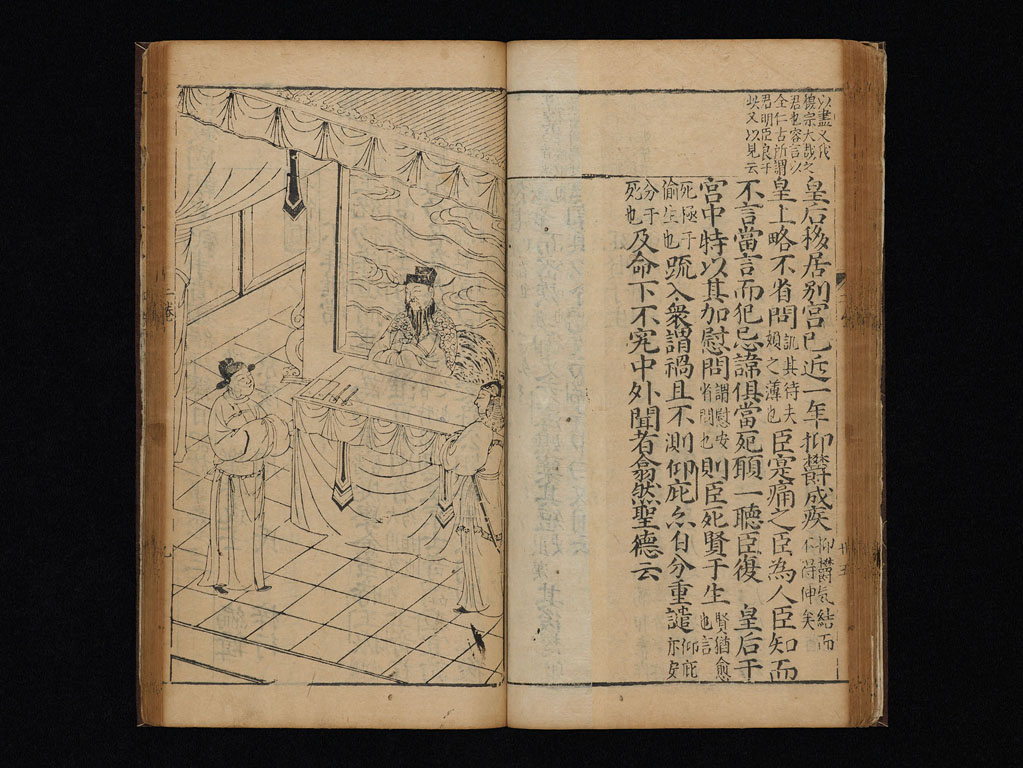 以盡
穆宗大哉之
君也容言以
全仁古所謂
君明臣良于
又以見云
皇后移居別宮已近一年抑鬱成疾抑鬱氣結而不得伸矣
皇上略不省問訕其待夫婦之薄也臣寔痛之臣為人臣知而
不言當言而犯忌諱俱當死願一聽臣復 皇后于
宮中特以其加慰問謂慰安省問也則臣死賢于生賢猶愈也言
死極于偷生也疏入衆謂禍且不測仰庇亦自分重譴仰庇亦安
分于死也及命下不究中外聞者翕然聖德云
二卷